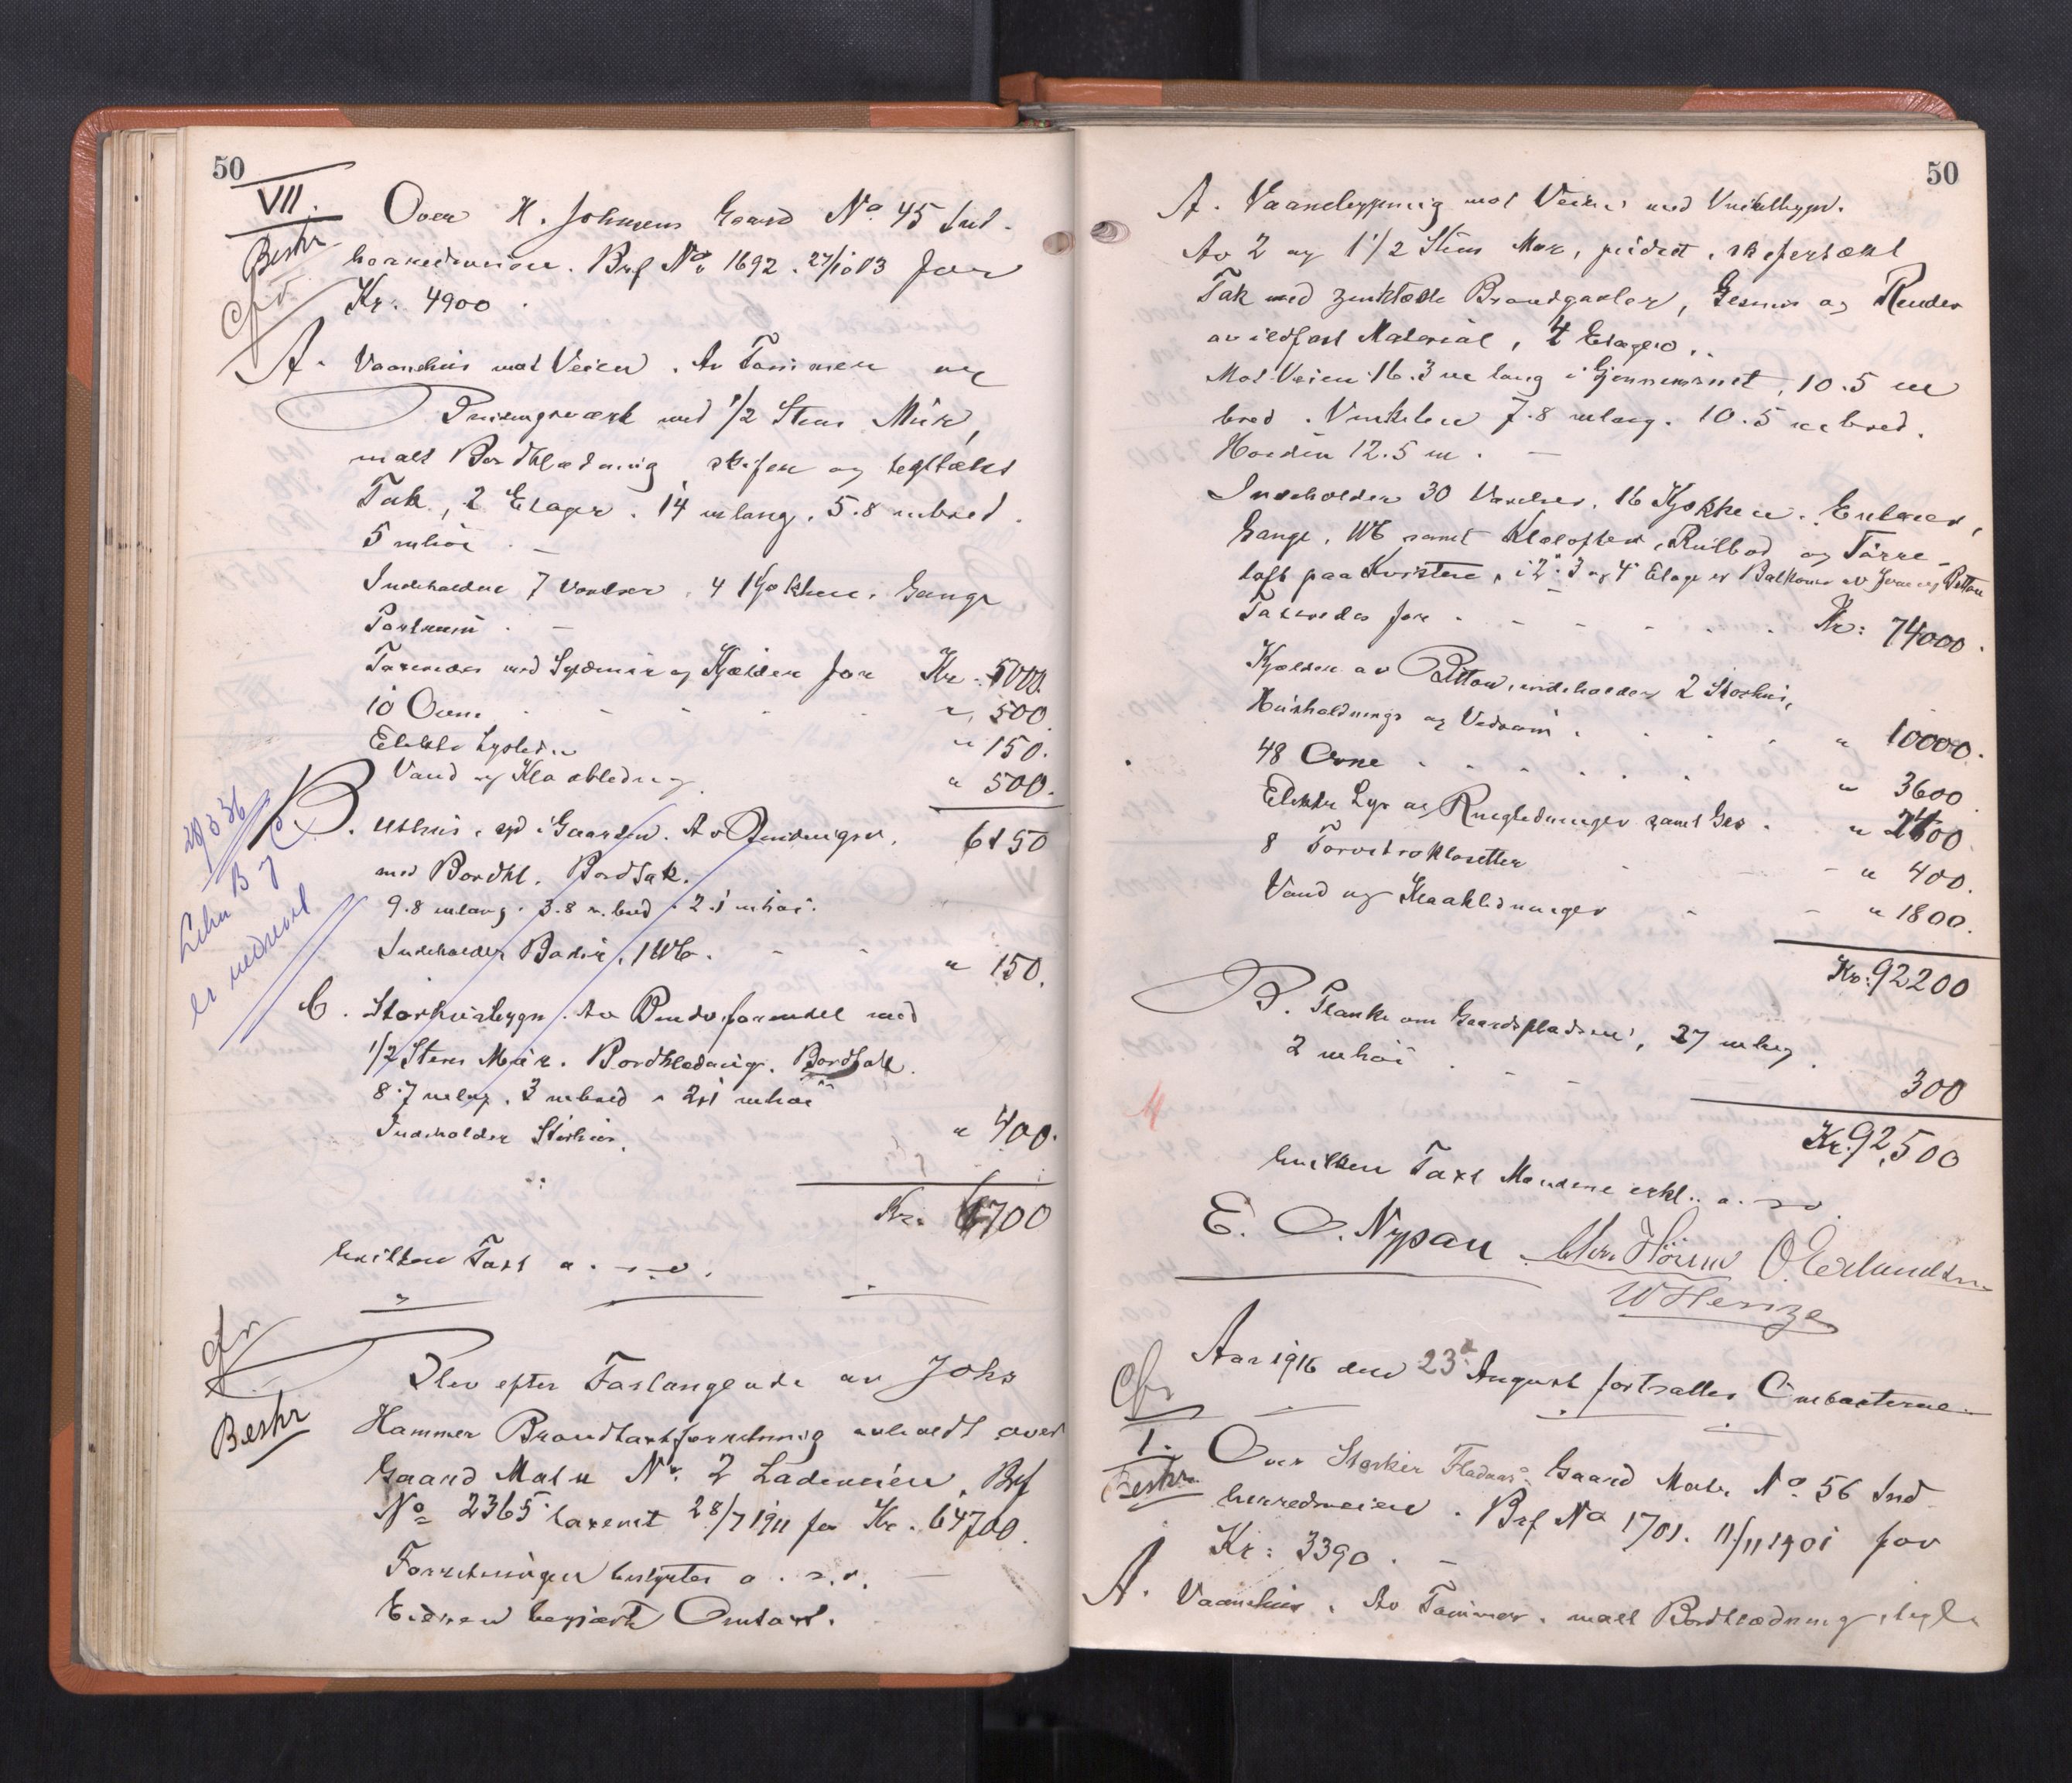 50
VII.
Beskr
Over H. Johnsens Gaard No 45 Ind-
herredsveien. Brf No 1692. 27/10 03 for
Kr. 4900.
A. Vaanehus mot Veien. Av Tømmer og
Bindingsværk med 1/2 Stens Mur,
malt Bordklædning skifer og tegltækt
Tak, 2 Etager. 14 m lang. 5.8 m bred.
5 m høi. –
Indeholder 7 Værelser, 4 Kjøkken, Gange
Portrum. –
Taxeredes med Syldmur og Kjælder for Kr. 5000.
10 Ovne " 500
Elektr Lysledn " 150.
Vand og Kloakledn " 500.
6150
B. Uthus, opf i Gaarden. Av Bindingsv.
med Bordkl. Bordtak.
9.8 m lang. 3.8 m bred. 2.1 m høi.
Indeholder Boder, 1 WC. - - " 150.
29/3 36
Litra B og C
er nedrevet
C. Storhusbygn. Av Bindv. for endel med
1/2 Stens Mur. Bordklædnig. Bordtak.
8.7 m lng. 3 m bred. 2.1 m høi
Indeholder Storhus. " 400.
Kr. 6700
hvilken Taxt o. s. v.
Beskr
Blev efter Forlangende av Johs
Hammer Brandtaxtforretning avholdt over
Gaard Matr No. 2 Lademoien, Brf
No 2365 taxeret 28/7 1911 for Kr. 64700.
Forretningen bestyrtes o. s. v. –
Eieren begjærte Omtaxt.
50
A. Vaanebygning mot Veien med Vinkelbygn.
Av 2 og 1 1/2 Stens Mur, pudset, skifertækt
Tak med zinktækte Brandgavler, Gesims og Render
av ildfast Material, 4 Etager.
Mot Veien 16.3 m lang i Gjennemsnit, 10.5 m
bred. Vinkelen 7.8 m lang. 10.5 m bred.
Høiden 12.5 m. –
Indeholder 30 Værelser, 16 Kjøkken. Entreer,
Gange, WC samt Klæsloft, Rulbod og Tørre-
loft paa Kvistene, i 2. 3 og 4 Etage er Balkoner av Jern og Betton
Taxeredes for - - - - - Kr: 74000.
Kjælder av Betton, indeholder 2 Storhus,
Husholdnings og Vedrum. " 10000.
48 Ovne - - - - - " 3600.
Elektr Lys og Ringledninger samt Gas. " 2400.
8 Torvstrøklosetter - - " 400.
Vand og Kloakledninger - - " 1800.
Kr: 92200
B. Planke om Gaardspladsen, 27 m lng.
2 m høi. - - 300
Kr. 92,500
hvilken Taxt Mændene erkl. o. s. v.
E. O. Nypan Chr. Hörem O Erlandsen
W Henze
Aar 1916 den 23d August fortsattes Ombæterne
I.
Beskr
Over Sterker Fladaas Gaard Matr No 56 Ind-
herredsveien. Brf No 1701. 11/11 1901 for
Kr: 3390. –
A. Vaanehus. Av Tømmer. malt Bordklædning, tegl-